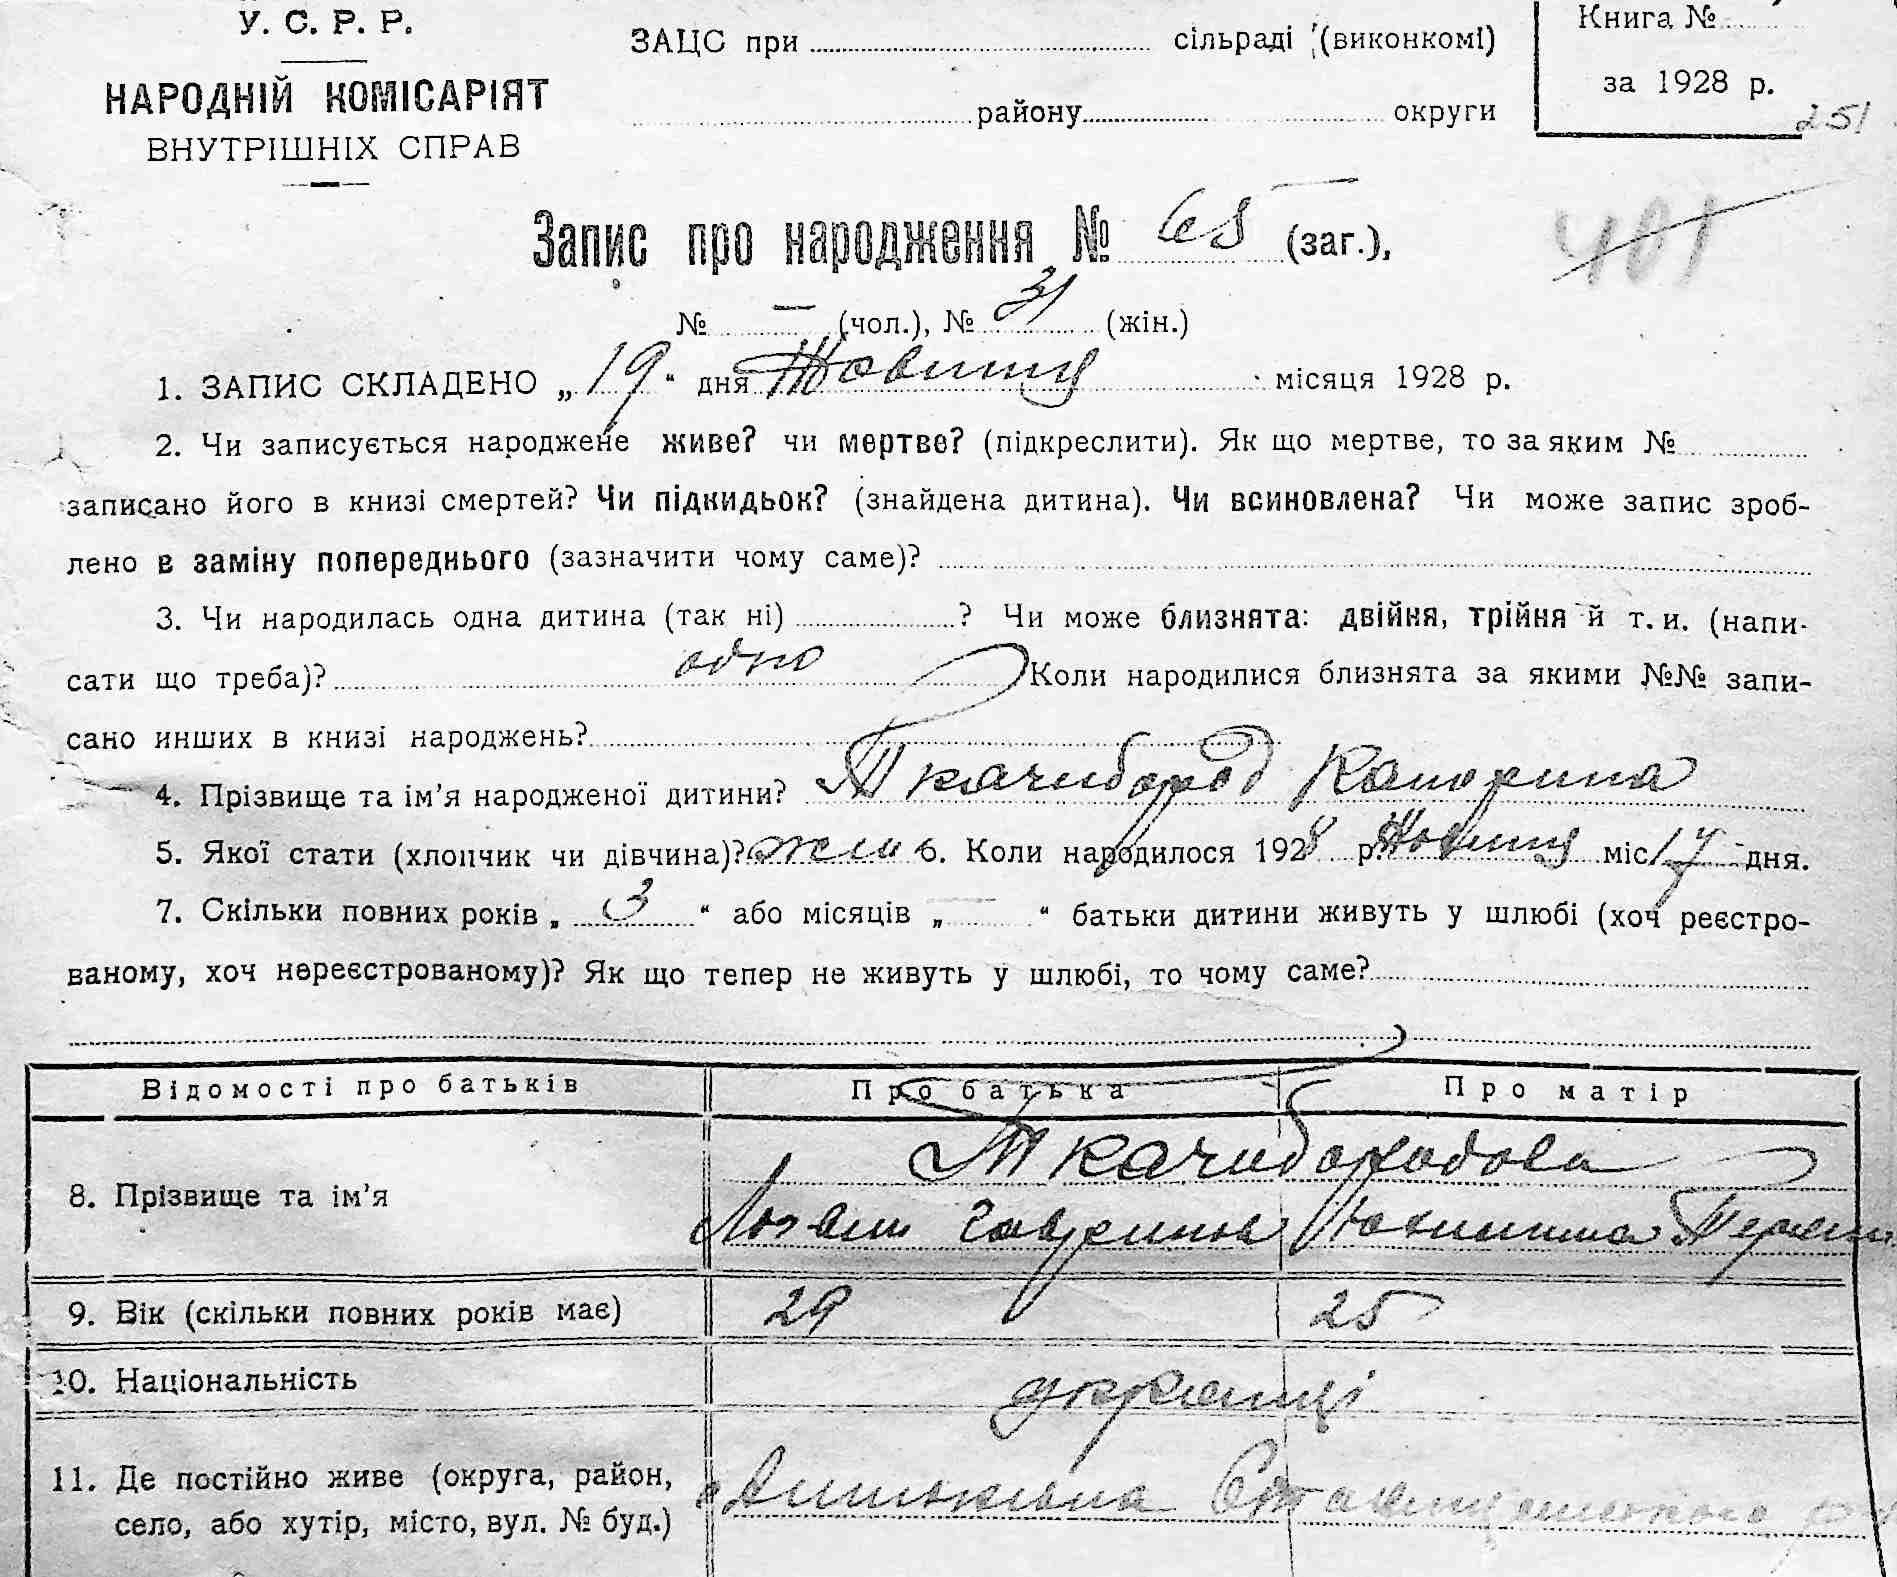 У. С. Р. Р.
НАРОДНІЙ КОМІСАРІЯТ
ВНУТРІШНІХ СПРАВ
ЗАЦС при сільраді (виконкомі)
району округи
Книга №
за 1928 р.
251
401
Запис про народження № 65 (заг.),
№ — (чол.), № 31 (жін.)
1. ЗАПИС СКЛАДЕНО „19“ дня Жовтня місяця 1928 р.
2. Чи записується народжене живе? чи мертве? (підкреслити). Як що мертве, то за яким №
записано його в книзі смертей? Чи підкидьок? (знайдена дитина). Чи всиновлена? Чи може запис зроб-
лено в заміну попереднього (зазначити чому саме)?
3. Чи народилась одна дитина (так ні) ? Чи може близнята: двійня, трійня й т. и. (напи-
сати що треба)? одно Коли народилися близнята за якими №№ запи-
сано инших в книзі народжень?
4. Прізвище та ім’я народженої дитини? Ткачибород Катерина
5. Якої стати (хлопчик чи дівчина)? жін 6. Коли народилося 1928 р. Жовтня міс 17 дня.
7. Скільки повних років „ 3 “ або місяців „ — “ батьки дитини живуть у шлюбі (хоч реєстро-
ваному, хоч нереєстрованому)? Як що тепер не живуть у шлюбі, то чому саме?
Відомості про батьків Про батька Про матір
8. Прізвище та ім’я Ткачибородови
9. Вік (скільки повних років має) 29 25
10. Національність українці
11. Де постійно живе (округа, район,
село, або хутір, місто, вул. № буд.)